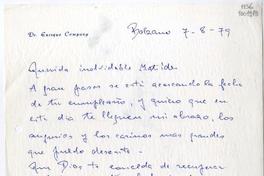 1136
Dr. Enrique Company
Bolzano 7-8-79
Querida inolvidable Matilde
A gran pasos se está acercando la fecha
de tu cumpleaños, y quiero que en
este día te lleguen mi abrazo, los
augurios y los cariños mas grandes
que puedo desearte.
Que Dios te conceda de recuperar